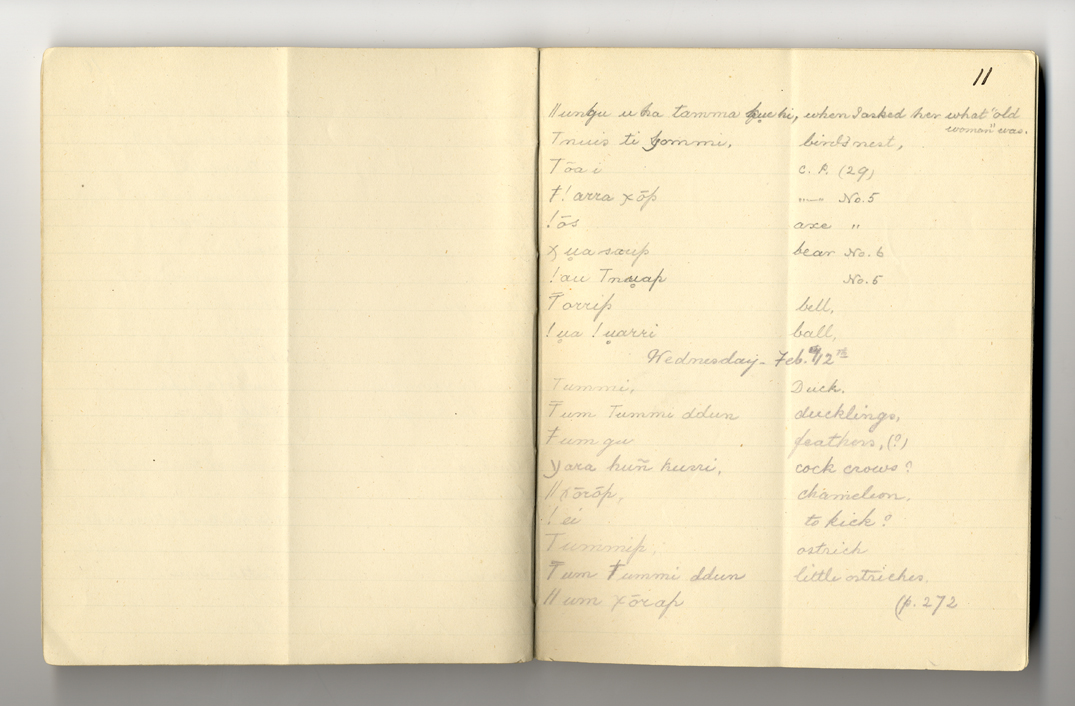 11
ǁunɡu u ha tamma kue hi, when I asked her what "old
woman" was.
Tnuis ti gommi, bird's nest,
Tōa i c. P. (29)
T! arra xōp "—" No. 5
!ōs axe "
xu̥a saup bear No. 6
!au Tnu̥ap No. 5
Torrip bell,
!u̥a !u̥arri ball,
Wednesday - Feb. 12th
Tummi, Duck.
Tum Tummi ddun ducklings,
Tum gu feathers, (?)
yara huñ kurri, cock crows?
ǁxōrōp, chamelion,
!ei to kick?
Tummip, ostrich
Tum Tummi ddun little ostriches.
ǁum xōrap (p. 272